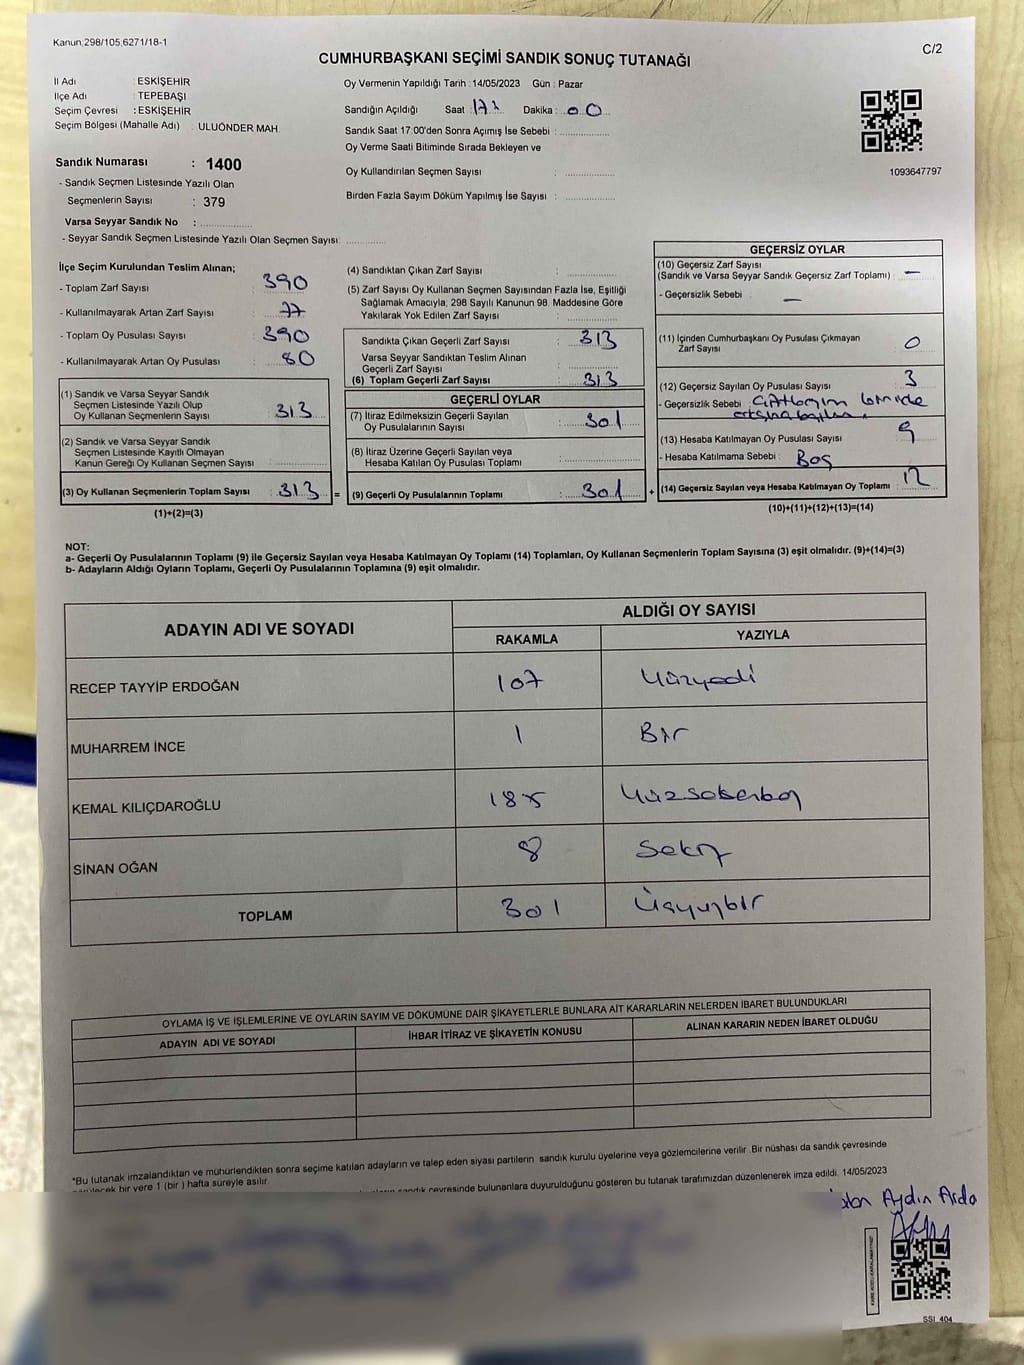 Kanun;298/105,6271/18-1
C/2
CUMHURBAŞKANI SEÇİMİ SANDIK SONUÇ TUTANAĞI
İl Adı : ESKİŞEHİR
İlçe Adı : TEPEBAŞI
Seçim Çevresi : ESKİŞEHİR
Seçim Bölgesi (Mahalle Adı) : ULUÖNDER MAH.
Oy Vermenin Yapıldığı Tarih : 14/05/2023 Gün : Pazar
Sandığın Açıldığı Saat 17: Dakika : 00
Sandık Saat 17:00'den Sonra Açımış İse Sebebi :
Oy Verme Saati Bitiminde Sırada Bekleyen ve
Oy Kullandırılan Seçmen Sayısı :
Birden Fazla Sayım Döküm Yapılmış İse Sayısı :
1093647797
Sandık Numarası : 1400
- Sandık Seçmen Listesinde Yazılı Olan
Seçmenlerin Sayısı : 379
Varsa Seyyar Sandık No :
- Seyyar Sandık Seçmen Listesinde Yazılı Olan Seçmen Sayısı:
İlçe Seçim Kurulundan Teslim Alınan;
- Toplam Zarf Sayısı : 390
- Kullanılmayarak Artan Zarf Sayısı : 77
- Toplam Oy Pusulası Sayısı : 390
- Kullanılmayarak Artan Oy Pusulası : 80
(1) Sandık ve Varsa Seyyar Sandık
Seçmen Listesinde Yazılı Olup
Oy Kullanan Seçmenlerin Sayısı : 313
(2) Sandık ve Varsa Seyyar Sandık
Seçmen Listesinde Kayıtlı Olmayan
Kanun Gereği Oy Kullanan Seçmen Sayısı :
(3) Oy Kullanan Seçmenlerin Toplam Sayısı : 313 =
(1)+(2)=(3)
(4) Sandıktan Çıkan Zarf Sayısı :
(5) Zarf Sayısı Oy Kullanan Seçmen Sayısından Fazla İse, Eşitliği
Sağlamak Amacıyla; 298 Sayılı Kanunun 98. Maddesine Göre
Yakılarak Yok Edilen Zarf Sayısı :
Sandıkta Çıkan Geçerli Zarf Sayısı : 313
Varsa Seyyar Sandıktan Teslim Alınan
Geçerli Zarf Sayısı :
(6) Toplam Geçerli Zarf Sayısı : 313
GEÇERLİ OYLAR
(7) İtiraz Edilmeksizin Geçerli Sayılan
Oy Pusulalarının Sayısı : 301
(8) İtiraz Üzerine Geçerli Sayılan veya
Hesaba Katılan Oy Pusulası Toplamı :
(9) Geçerli Oy Pusulalarının Toplamı : 301 +
GEÇERSİZ OYLAR
(10) Geçersiz Zarf Sayısı
(Sandık ve Varsa Seyyar Sandık Geçersiz Zarf Toplamı) : —
- Geçersizlik Sebebi : —
(11) İçinden Cumhurbaşkanı Oy Pusulası Çıkmayan
Zarf Sayısı : 0
(12) Geçersiz Sayılan Oy Pusulası Sayısı : 3
- Geçersizlik Sebebi :
(13) Hesaba Katılmayan Oy Pusulası Sayısı : 9
- Hesaba Katılmama Sebebi : Boş
(14) Geçersiz Sayılan veya Hesaba Katılmayan Oy Toplamı : 12
(10)+(11)+(12)+(13)=(14)
NOT:
a- Geçerli Oy Pusulalarının Toplamı (9) ile Geçersiz Sayılan veya Hesaba Katılmayan Oy Toplamı (14) Toplamları, Oy Kullanan Seçmenlerin Toplam Sayısına (3) eşit olmalıdır. (9)+(14)=(3)
b- Adayların Aldığı Oyların Toplamı, Geçerli Oy Pusulalarının Toplamına (9) eşit olmalıdır.
ADAYIN ADI VE SOYADI
ALDIĞI OY SAYISI
RAKAMLA YAZIYLA
RECEP TAYYİP ERDOĞAN 107 Yüzyedi
MUHARREM İNCE 1 Bir
KEMAL KILIÇDAROĞLU 185 Yüzseksenbeş
SİNAN OĞAN 8 Sekiz
TOPLAM 301 Üçyüzbir
OYLAMA İŞ VE İŞLEMLERİNE VE OYLARIN SAYIM VE DÖKÜMÜNE DAİR ŞİKAYETLERLE BUNLARA AİT KARARLARIN NELERDEN İBARET BULUNDUKLARI
ADAYIN ADI VE SOYADI İHBAR İTİRAZ VE ŞİKAYETİN KONUSU ALINAN KARARIN NEDEN İBARET OLDUĞU
*Bu tutanak imzalandıktan ve mühürlendikten sonra seçime katılan adayların ve talep eden siyasi partilerin sandık kurulu üyelerine veya gözlemcilerine verilir. Bir nüshası da sandık çevresinde
bir yere 1 (bir) hafta süreyle asılır.
sandık çevresinde bulunanlara duyurulduğunu gösteren bu tutanak tarafımızdan düzenlenerek imza edildi. 14/05/2023
Aydın Arda
SSI_404